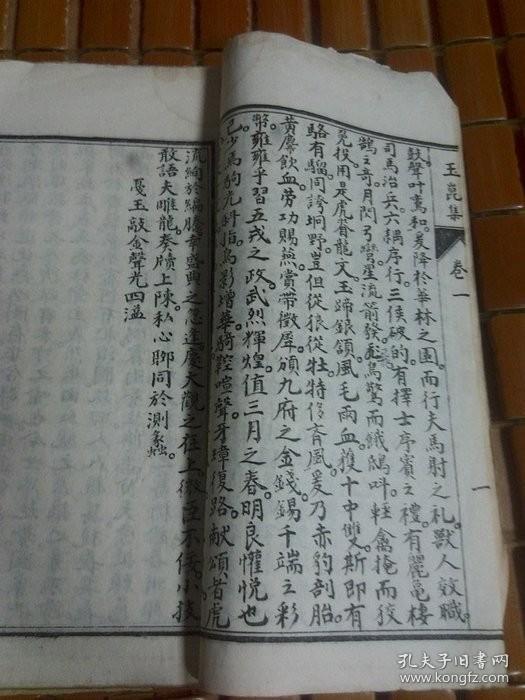 玉崑集
卷一
一
鼓聲叶萬和。爰降於華林之圃。而行夫馬射之礼。獸人效職。
司馬治兵。六耦序行。三侯破的。有擇士序賓之禮。有麗龜棲
鵠之奇。月閃弓彎。星流箭發。鳥驚而鵰叫。輕禽掩而狡
兔投。用是虎賁龍文。玉蹄銀頷。風毛雨血。獲十中雙。斯即有
駱有騮。同誇坰野。豈但從狼從牡。特侈育風。爰乃赤豹剖胎。
黄麞飲血。勞功賜燕。賞帶徵犀。頒九府之金錢。錫千端之彩
幣。雍雍乎習五戎之政。武烈輝煌。值三月之春。明良懽悦也
已少焉。狗光斜指。鳥影增華。騎鞚喧聲。牙璋復路。献頌者虎
流絢於縟慶大觀之在上。微臣不佞。小技
敢語夫雕龍。奏牘上陳。私心聊同於測蠡。
戛玉敲金聲光四溢
孔夫子旧書网
www.kongfz.com